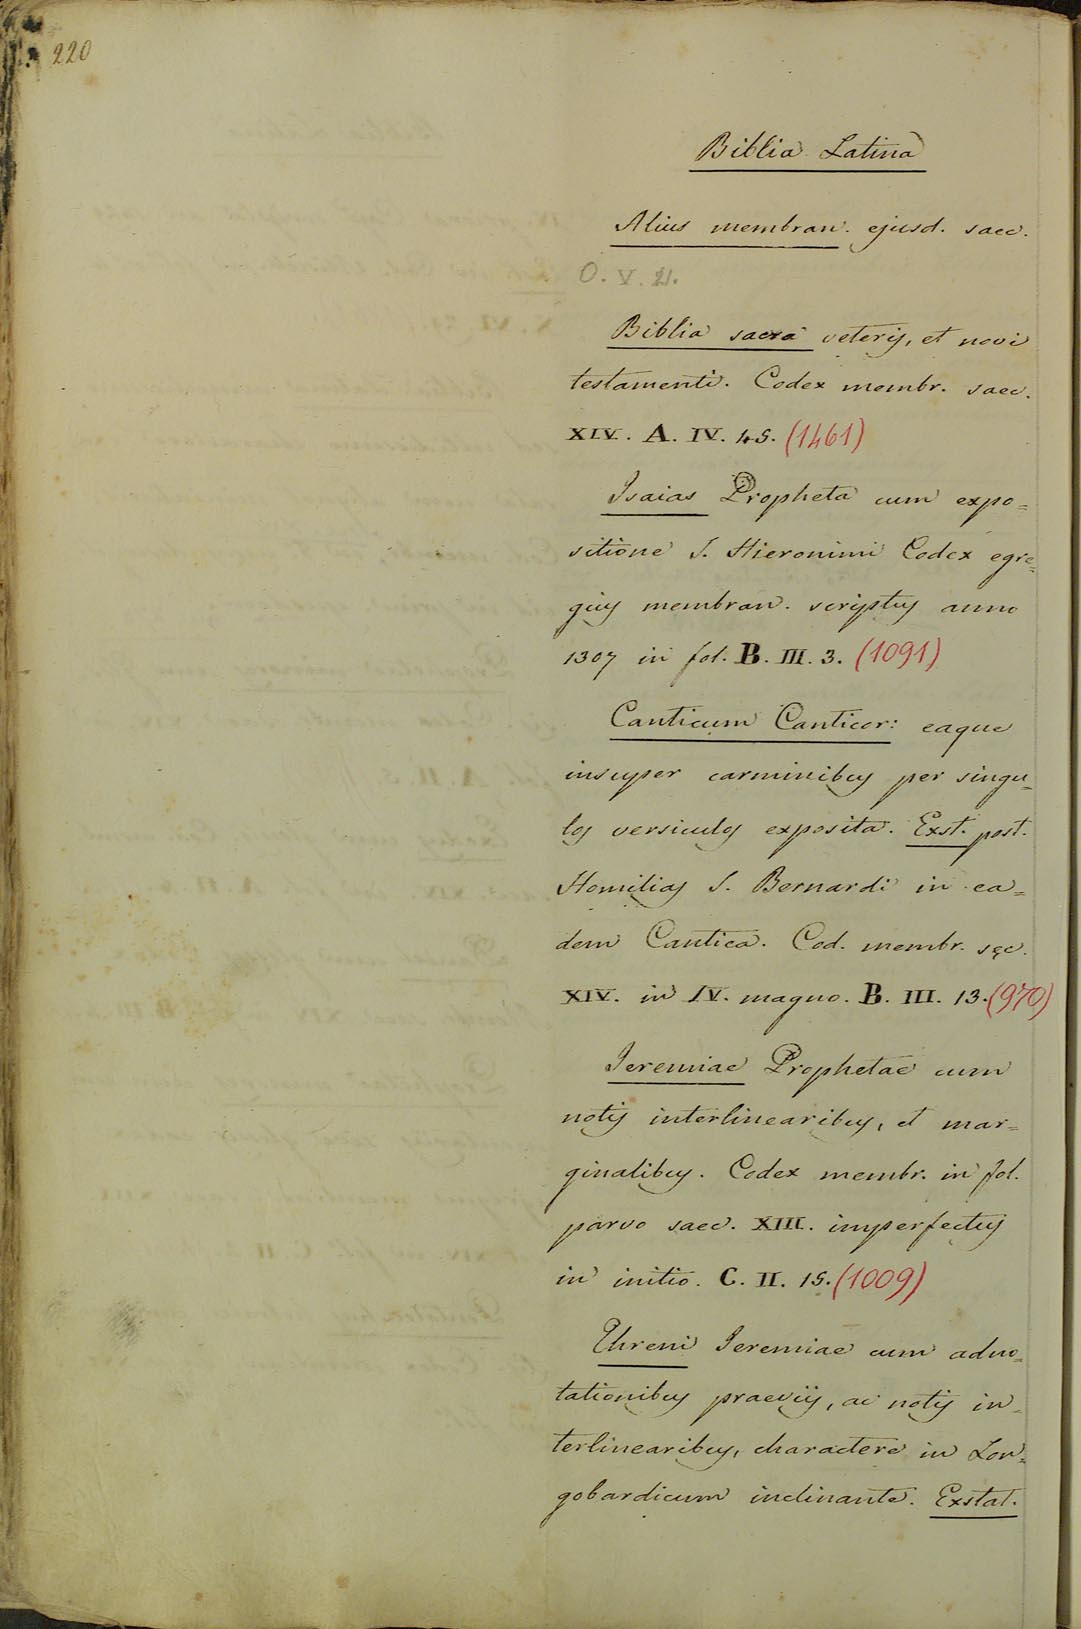 220
Biblia Latina
Alius membran. ejusd. saec.
O. V. 21.
Biblia sacra veteris, et novi
testamenti. Codex membr. saec.
XIV. A. IV. 45. (1461)
Isaias Propheta cum expo=
sitione S. Hieronimi Codex egre=
gius membran. scriptus anno
1307 in fol. B. III. 3. (1091)
Canticum Canticor: eaque
insuper carminibus per singu=
los versiculos exposita. Exst. post.
Homilias S. Bernardi in ea=
dem Cantica. Cod. membr. sęc.
XIV. in IV. magno. B. III. 13. (970)
Jeremiae Prophetae cum
notis interlinearibus, et mar=
ginalibus. Codex membr. in fol.
parvo saec. XIII. imperfectus
in initio. C. II. 15. (1009)
Threni Jeremiae cum adno=
tationibus praeviis, ac notis in=
terlinearibus, charactere in Lon=
gobardicum inclinante. Exstat.